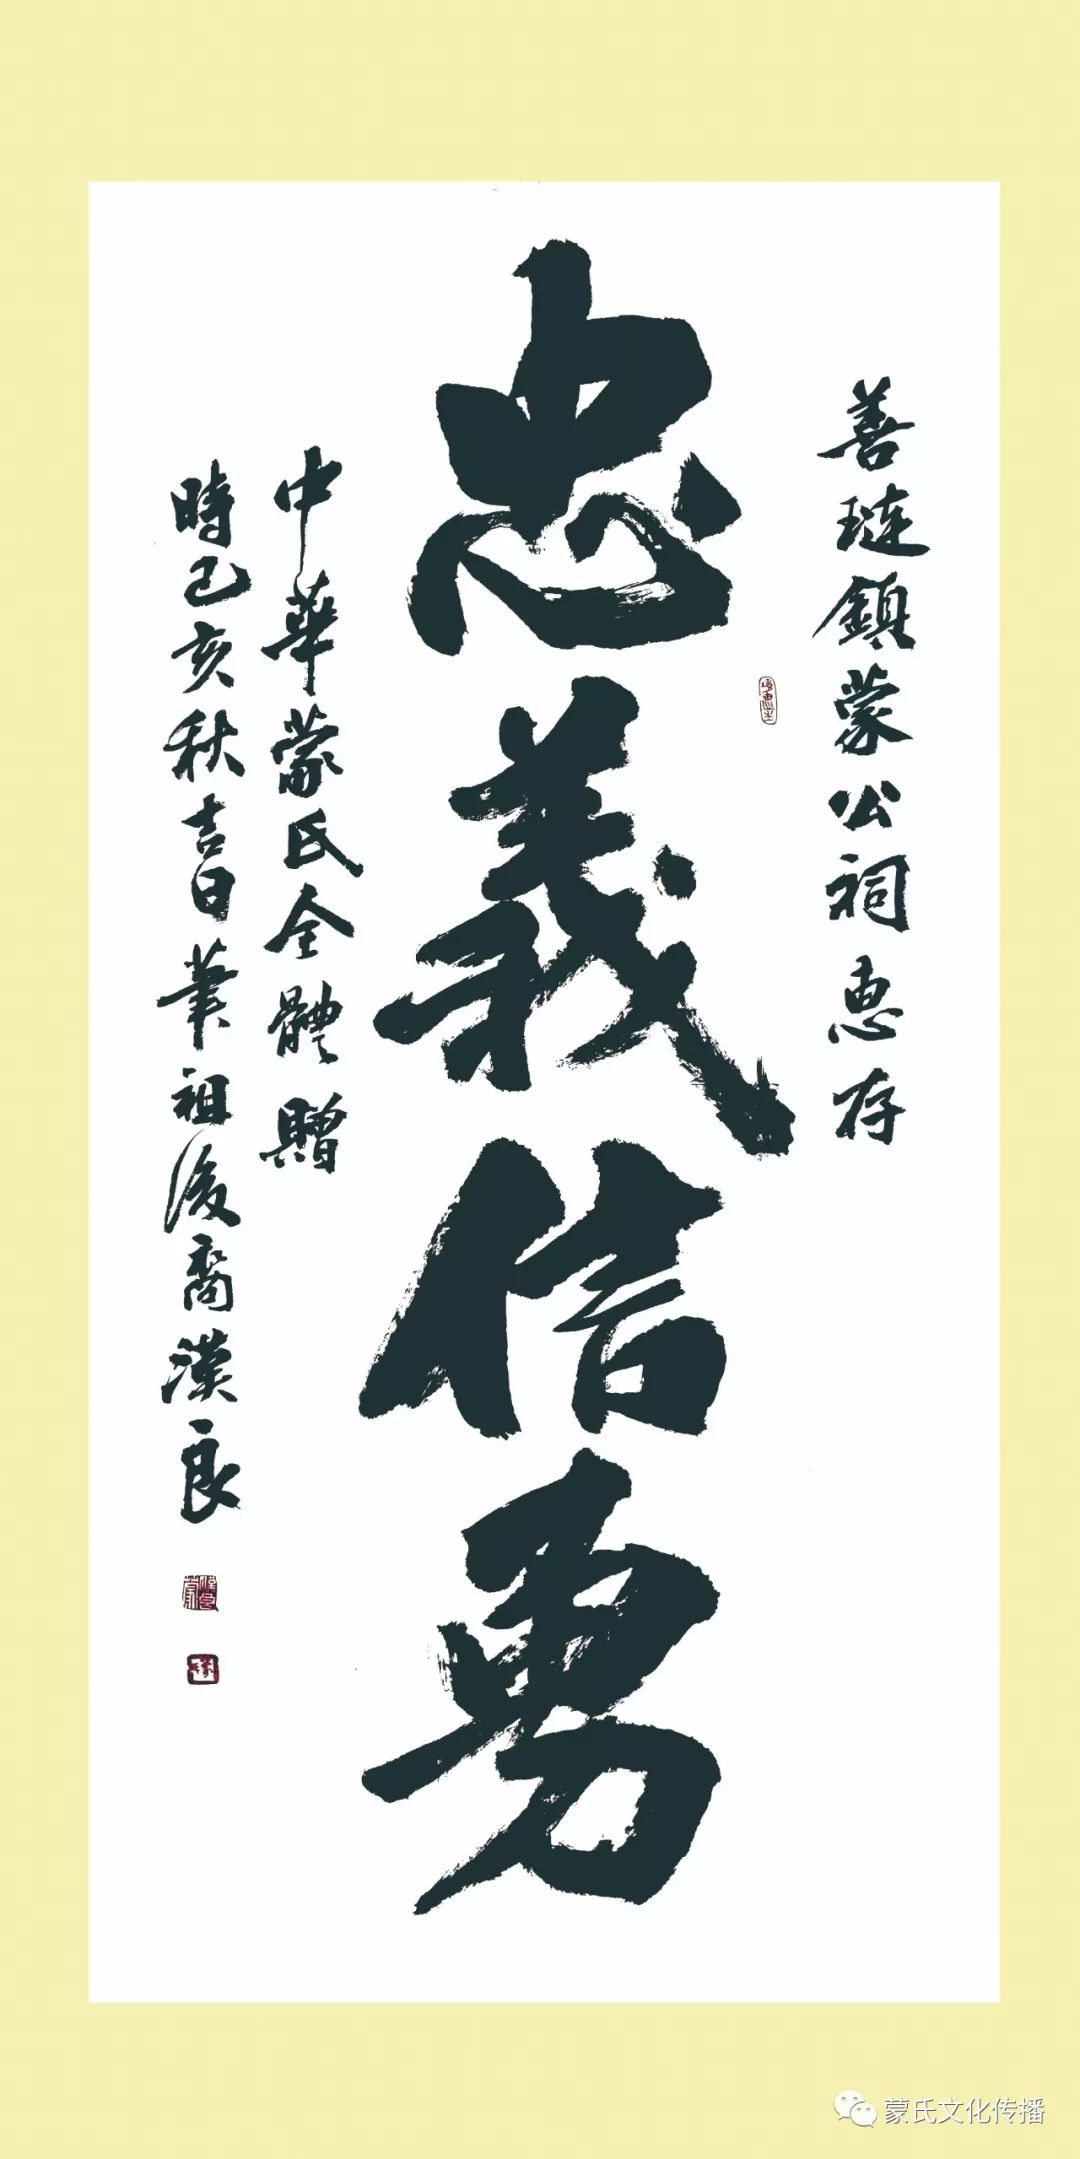 善琏鎮蒙公祠惠存
忠義信勇
中華蒙氏全體贈
時己亥秋吉日筆祖後裔漢良
蒙氏文化传播